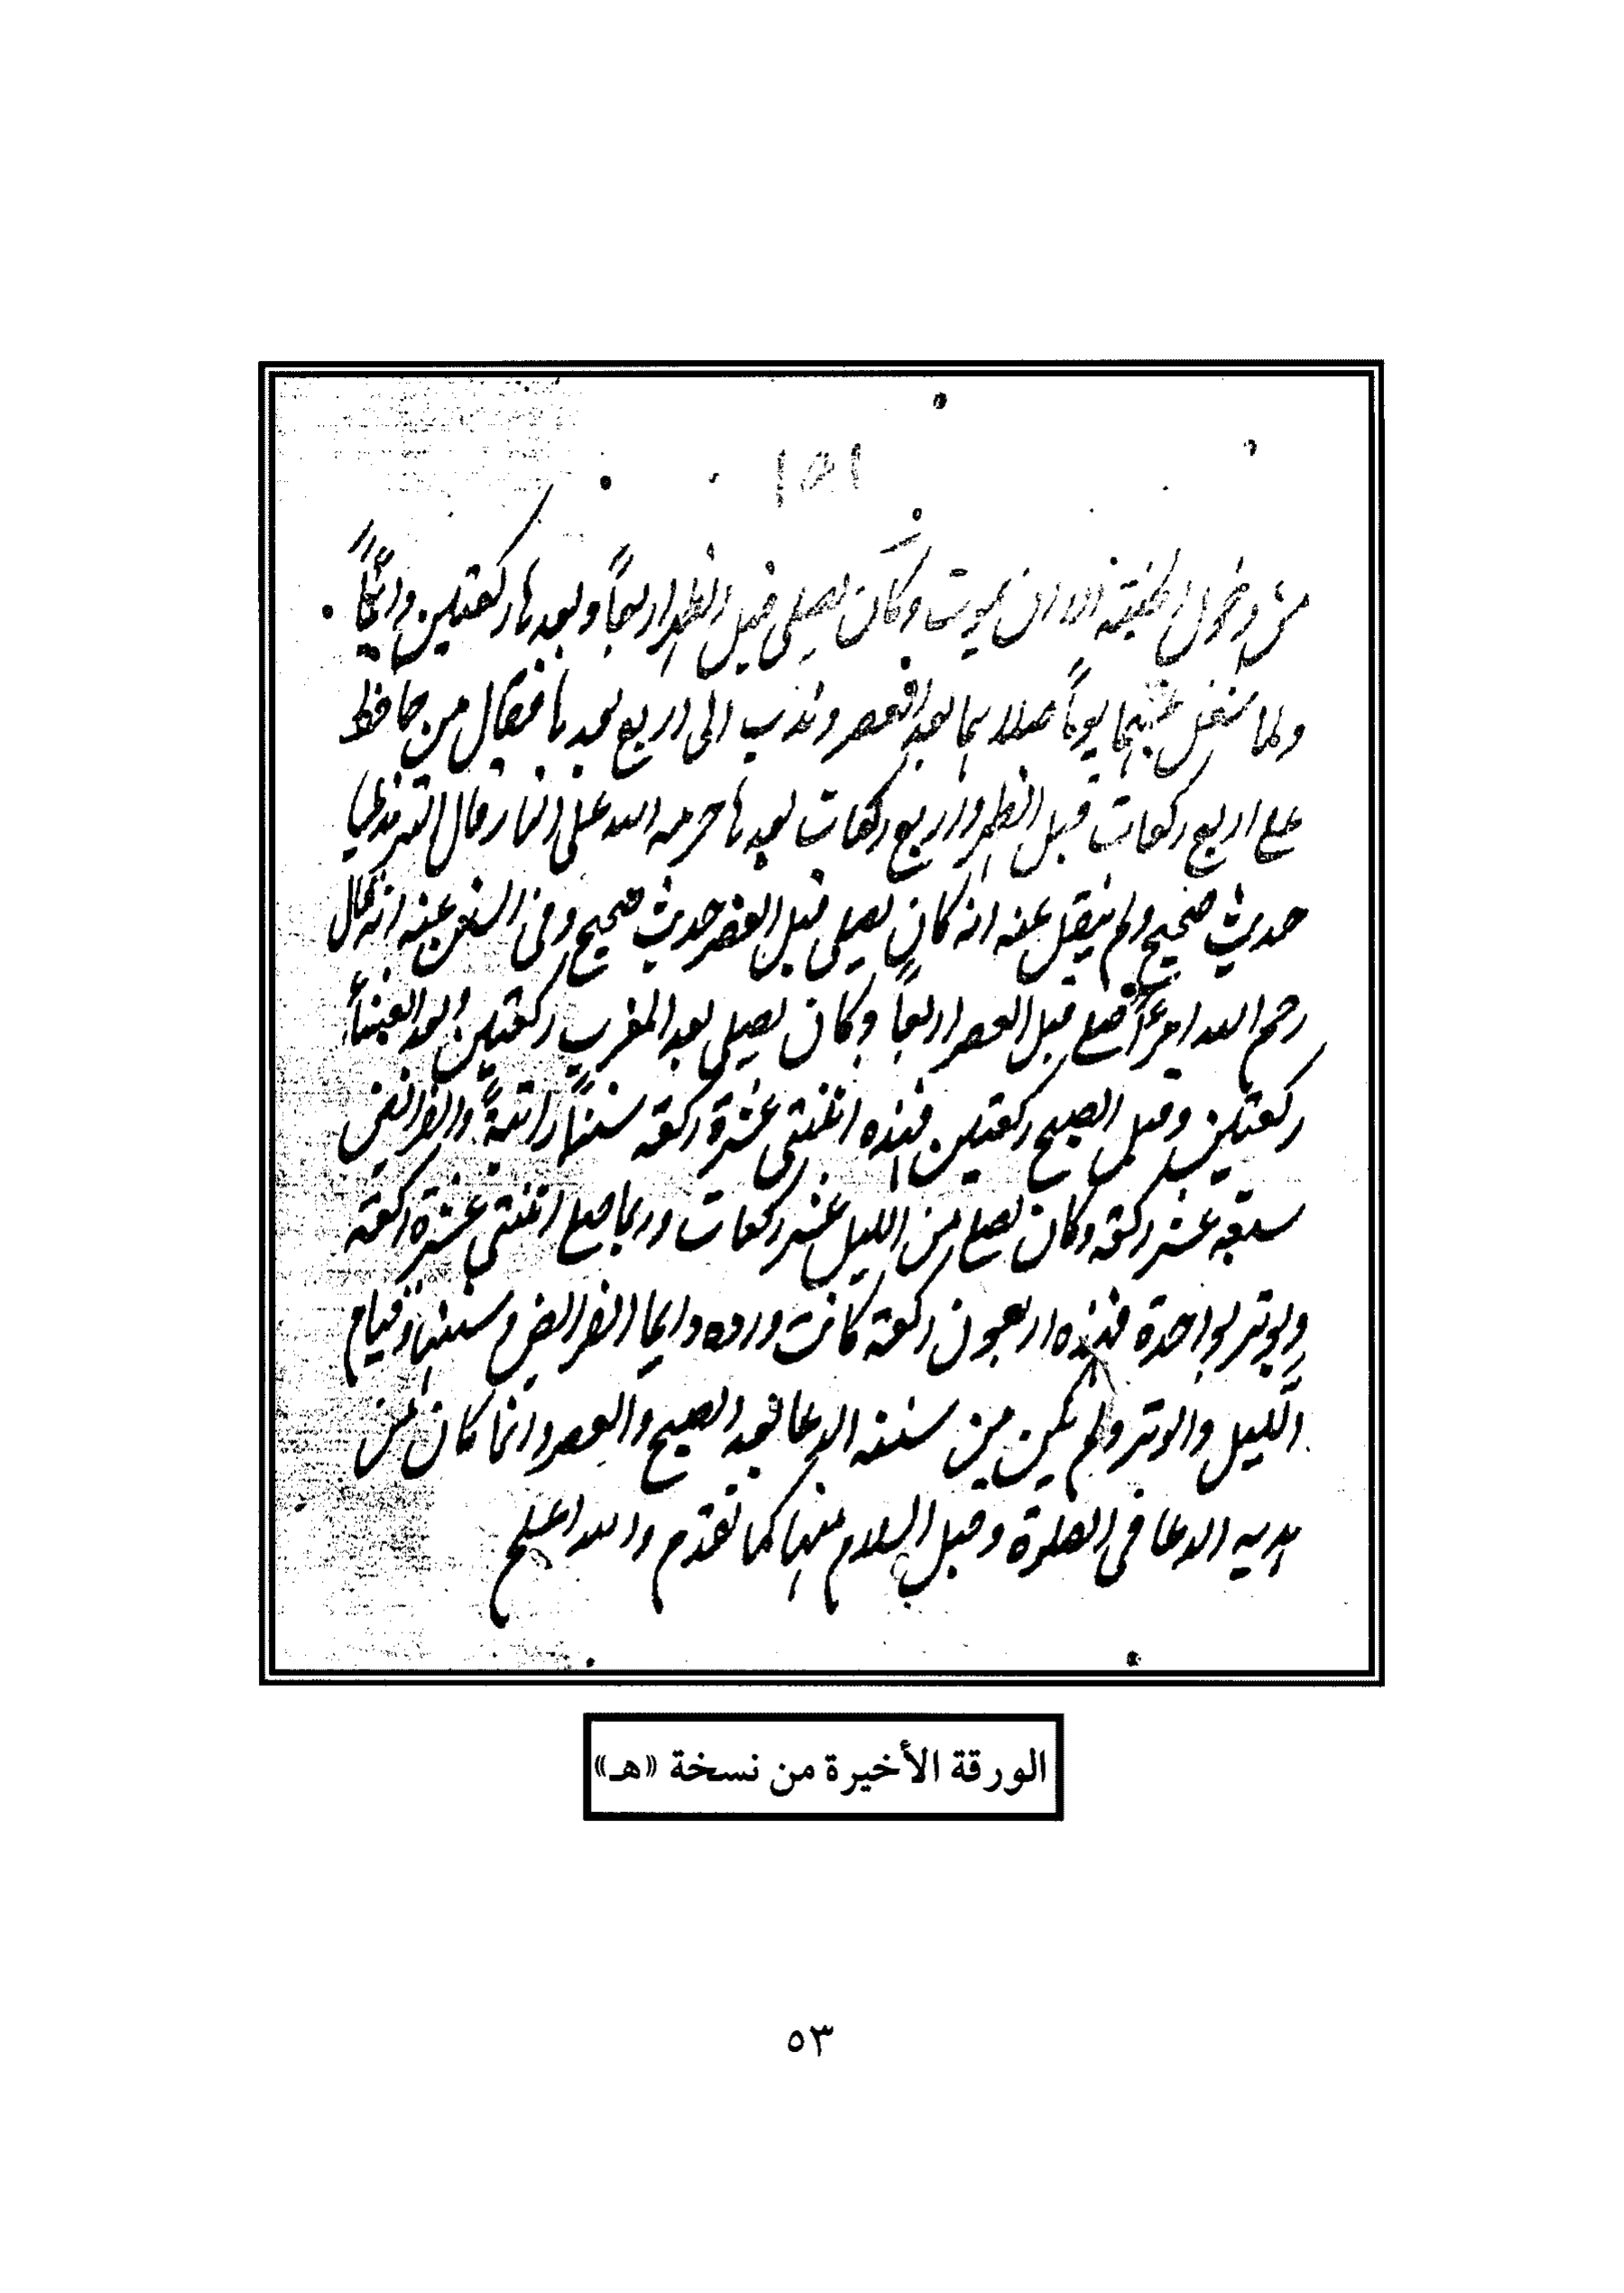 ١٥١
من دخول الجنة الا ان يموت وكان يصلي قبل الظهر اربعاً وبعدها ركعتين دايماً
ولما شغل عنهما يوماً صلاهما بعد العصر وندب الى اربع بعدها فقال من حافظ
على اربع ركعات قبل الظهر واربع ركعات بعدها حرمه الله على النار قال الترمذي
حديث صحيح ولم ينقل عنه انه كان يصلي قبل العصر حديث صحيح وفي السنن عنه انه قال
رحم الله امرءاً صلى قبل العصر اربعاً وكان يصلي بعد المغرب ركعتين وبعد العشاء
ركعتين وقبل الصبح ركعتين فهذه اثنتي عشرة ركعة سنناً راتبةً والفرائض
سبعة عشر ركعة وكان يصلي من الليل عشر ركعات وربما صلى اثنتي عشرة ركعة
ويوتر بواحدة فهذه اربعون ركعة كانت ورده دايما الفرائض وسننها وقيام
الليل والوتر ولم يكن من سنته الدعا بعد الصبح والعصر وانما كان من
هديه الدعا في الصلوة وقبل السلام منها كما تقدم والله اعلم
الورقة الأخيرة من نسخة «هـ»
٥٣